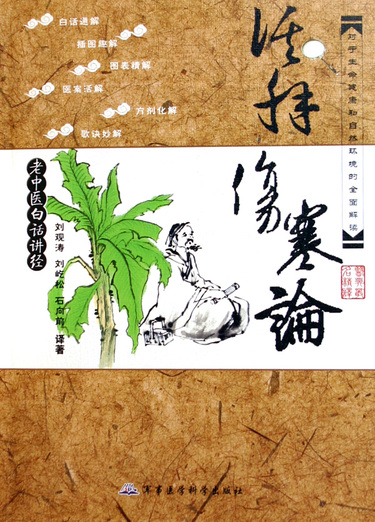 白话通解
插图趣解
图表精解
医案活解
方剂化解
歌诀妙解
活解
伤寒論
对于生命健康和自然环境的全面解读
老中医白话讲经
刘观涛 刘屹松 石向前 译著
军事医学科学出版社